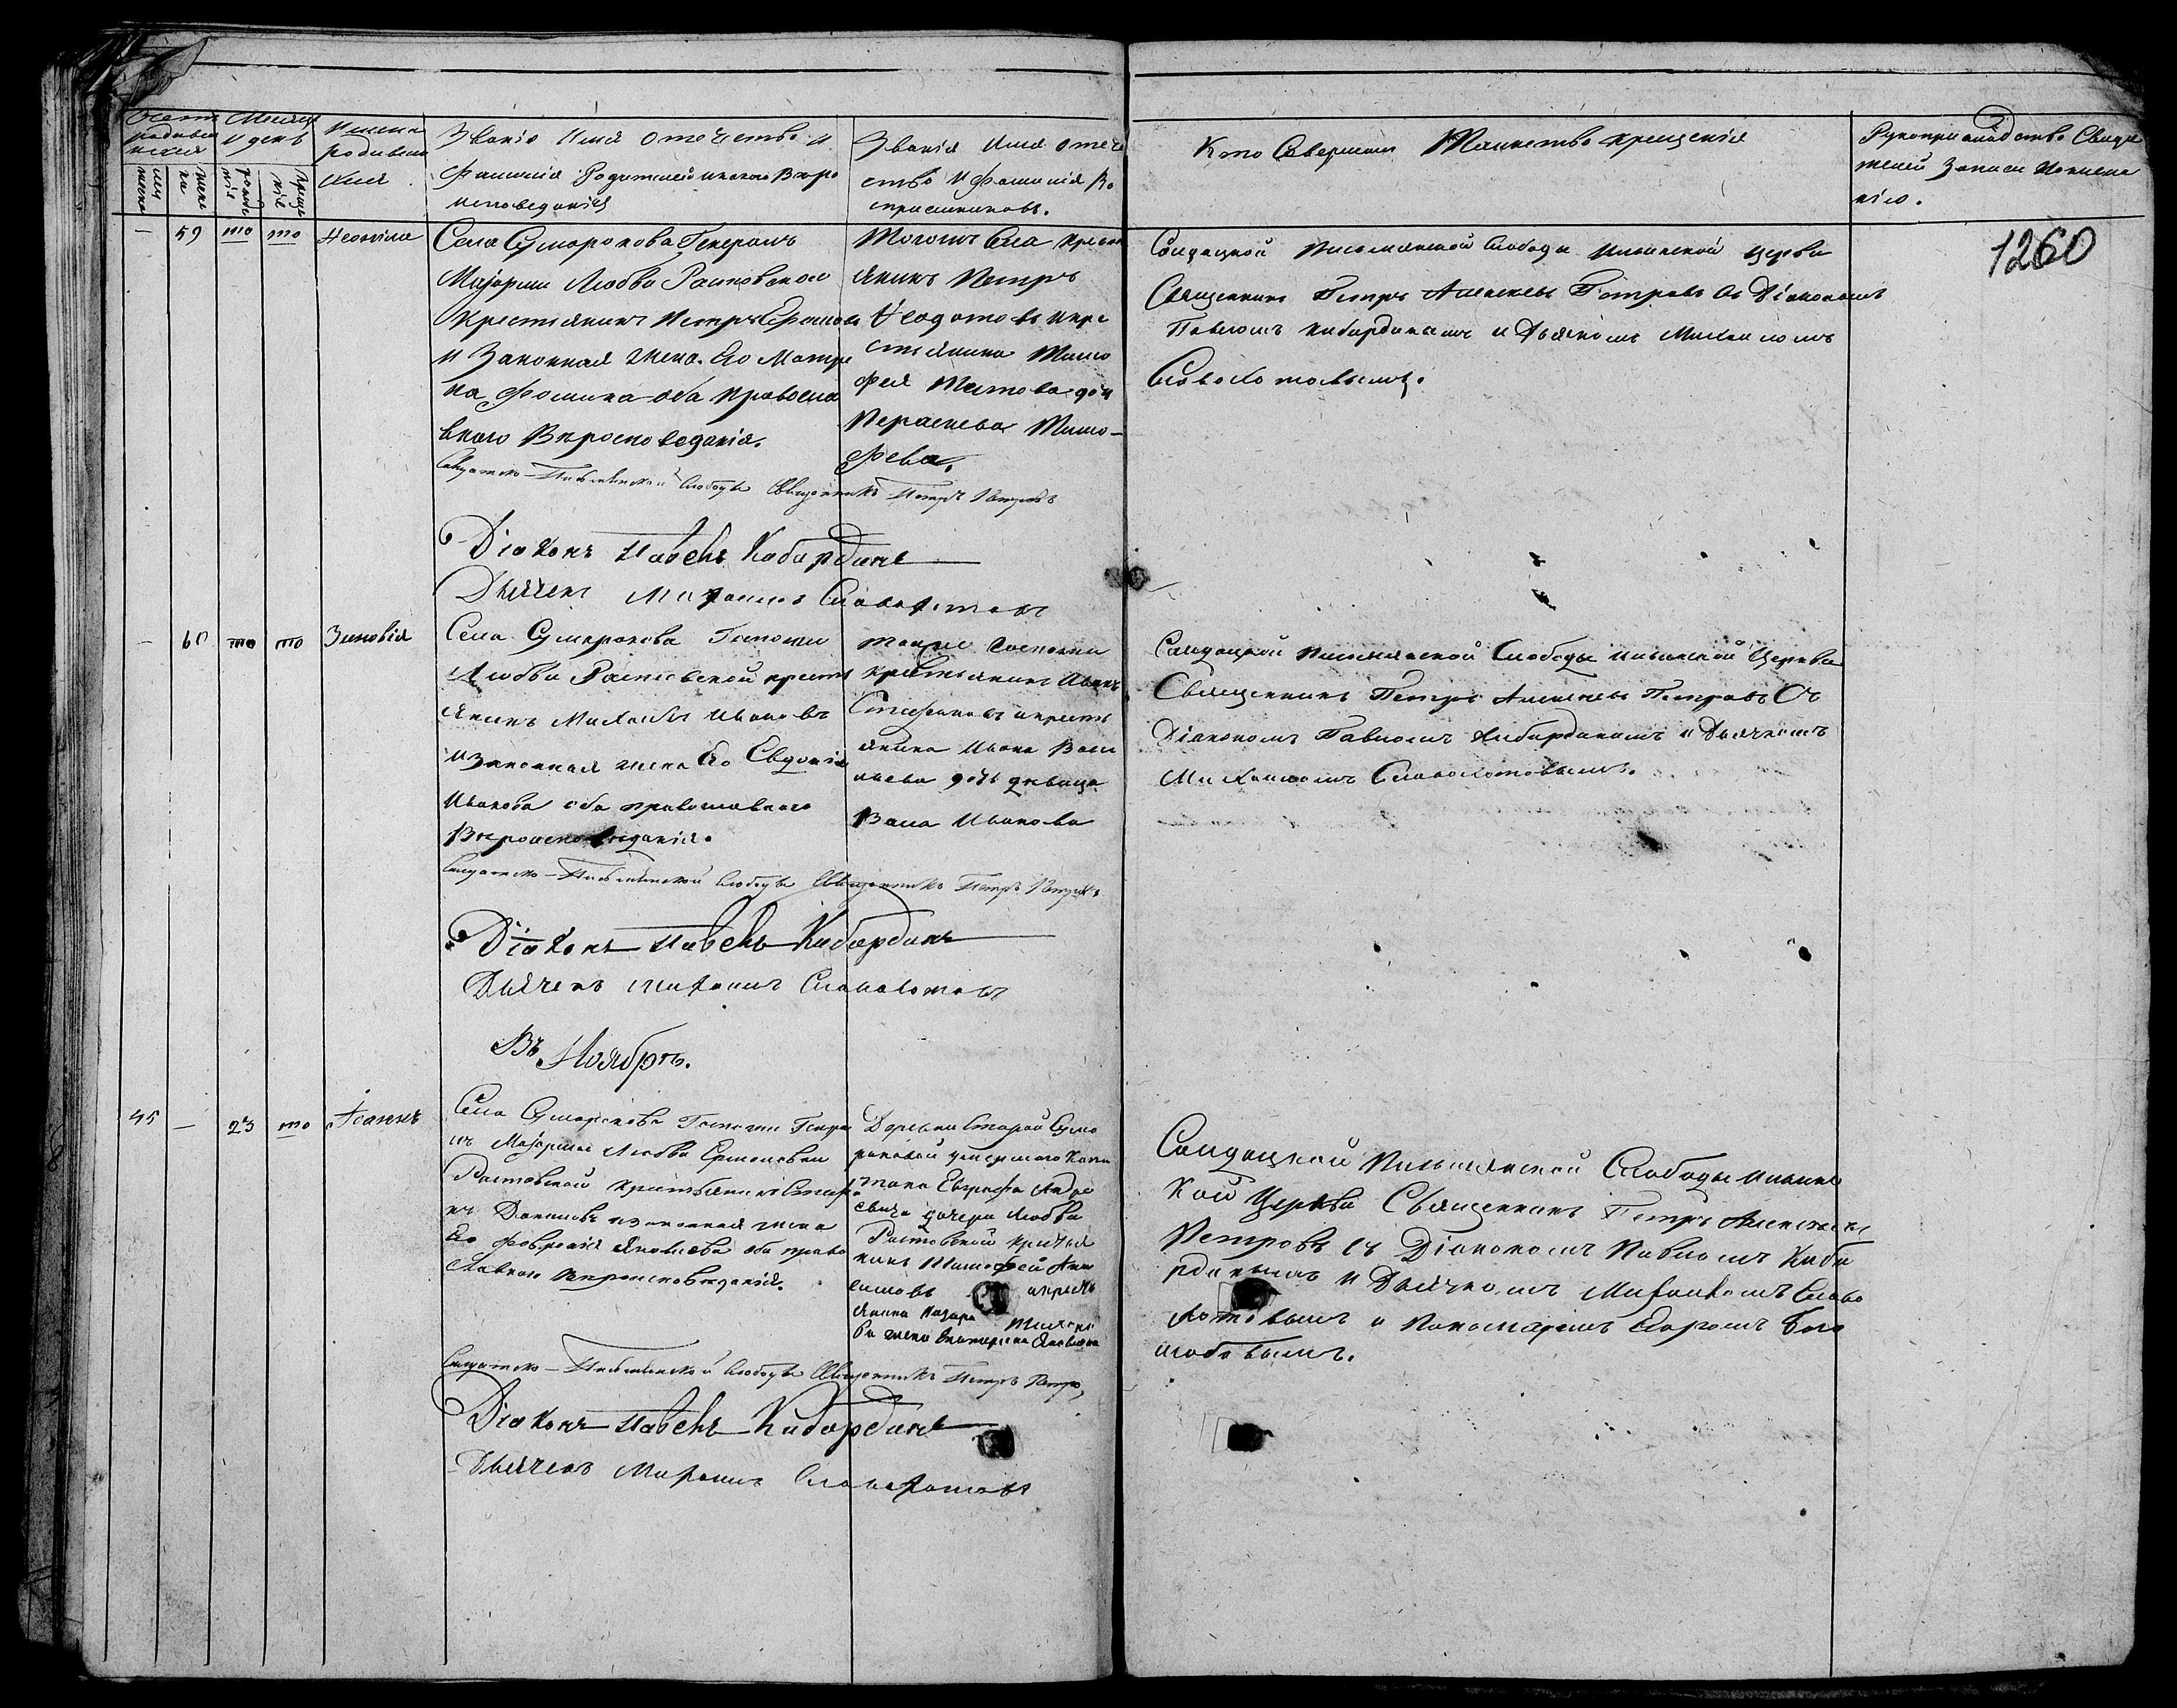 Счетъ
родивш
ихся
Месяцъ
и день
Имена
родивши
хся
Званiе Имя отечество и
Фамилiя Родителей и какого Вѣро
исповеданiя
Званiя Имя отеч
ство и Фамилiя Во
спрiемниковъ.
муж
жен
рожде
нiя
креще
нiя
Кто Совершалъ Таинство крещенiя
Рукоприкладство Свиде
телей Записи
нiю.
1260
— 59 то то Неонила
Села Сумарокова Генералъ
Маiорши Любви Растовской
Крестьянинъ Петръ Ефимовъ
и Законная жена Его Матре
на Фомина оба Правосла
внаго Вѣроисповеданiя.
Тогожъ Села Кресть
янинъ Петръ
Ѳедотовъ и кре
стьянина Тимо
фея Титова дочь
Тимо-
феева.
Слободы Ильинской Церкви
Священникъ Петръ Алексеевъ Петровъ съ Дiякономъ
Павломъ Кибардинымъ и Дьячкомъ Михаиломъ
Словохотовымъ.
Слободы Священникъ Петръ Петровъ
Дiаконъ Павелъ Кибардинъ
Дьячекъ Михаилъ Словохотовъ
— 60 то то Зиновiя
Села Сумарокова Госпожи
Любви Растовской кресть
янинъ Михаилъ Ивановъ
и законная жена Его Евдокiя
Иванова оба православнаго
Вѣроисповеданiя.
тояже Госпожи
крестьянинъ Иванъ
Стефановъ и кресть
янина Ивана Васи
льева дочь девица
Иванова
Слободы Ильинской Церкви
Священникъ Петръ Алексеевъ Петровъ Съ
Дiякономъ Павломъ Кибардинымъ и Дьячкомъ
Михаиломъ Словохотовымъ.
Слободы Священникъ Петръ Петровъ
Дiаконъ Павелъ Кибардинъ
Дьячекъ Михаилъ Словохотовъ
Въ Ноябрѣ.
45 — 23 то
Села Сумарокова Госпожи Генера
лъ Маiорши Любви Ермолаевны
Растовской крестьянинъ
Даниловъ и законная жена
Его Февронiя Яковлева оба право
славнаго вѣроисповѣданiя.
Деревни Старой Сума
роковой умершаго Капи
тана Евграфа Андре
евича дочери Любви
Растовской крестья
нинъ Тимофей
и кресть
янина Назара
жена Екатерина Яковлева
Слободы Ильинс
кой Церкви Священникъ Петръ Алексеевъ
Петровъ съ Дiякономъ Павломъ Киба
рдинымъ и Дьячкомъ Михаиломъ Слово
хотовымъ и Пономаремъ Егоромъ Бого
любовымъ.
Слободы Священникъ Петръ Петро
Дiаконъ Павелъ Кибардинъ
Дьячекъ Михаилъ Словохотовъ